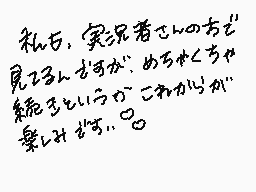 私も、実況者さんの方で
見てるんですが、めちゃくちゃ
続きというかこれからが
楽しみです。♡♡